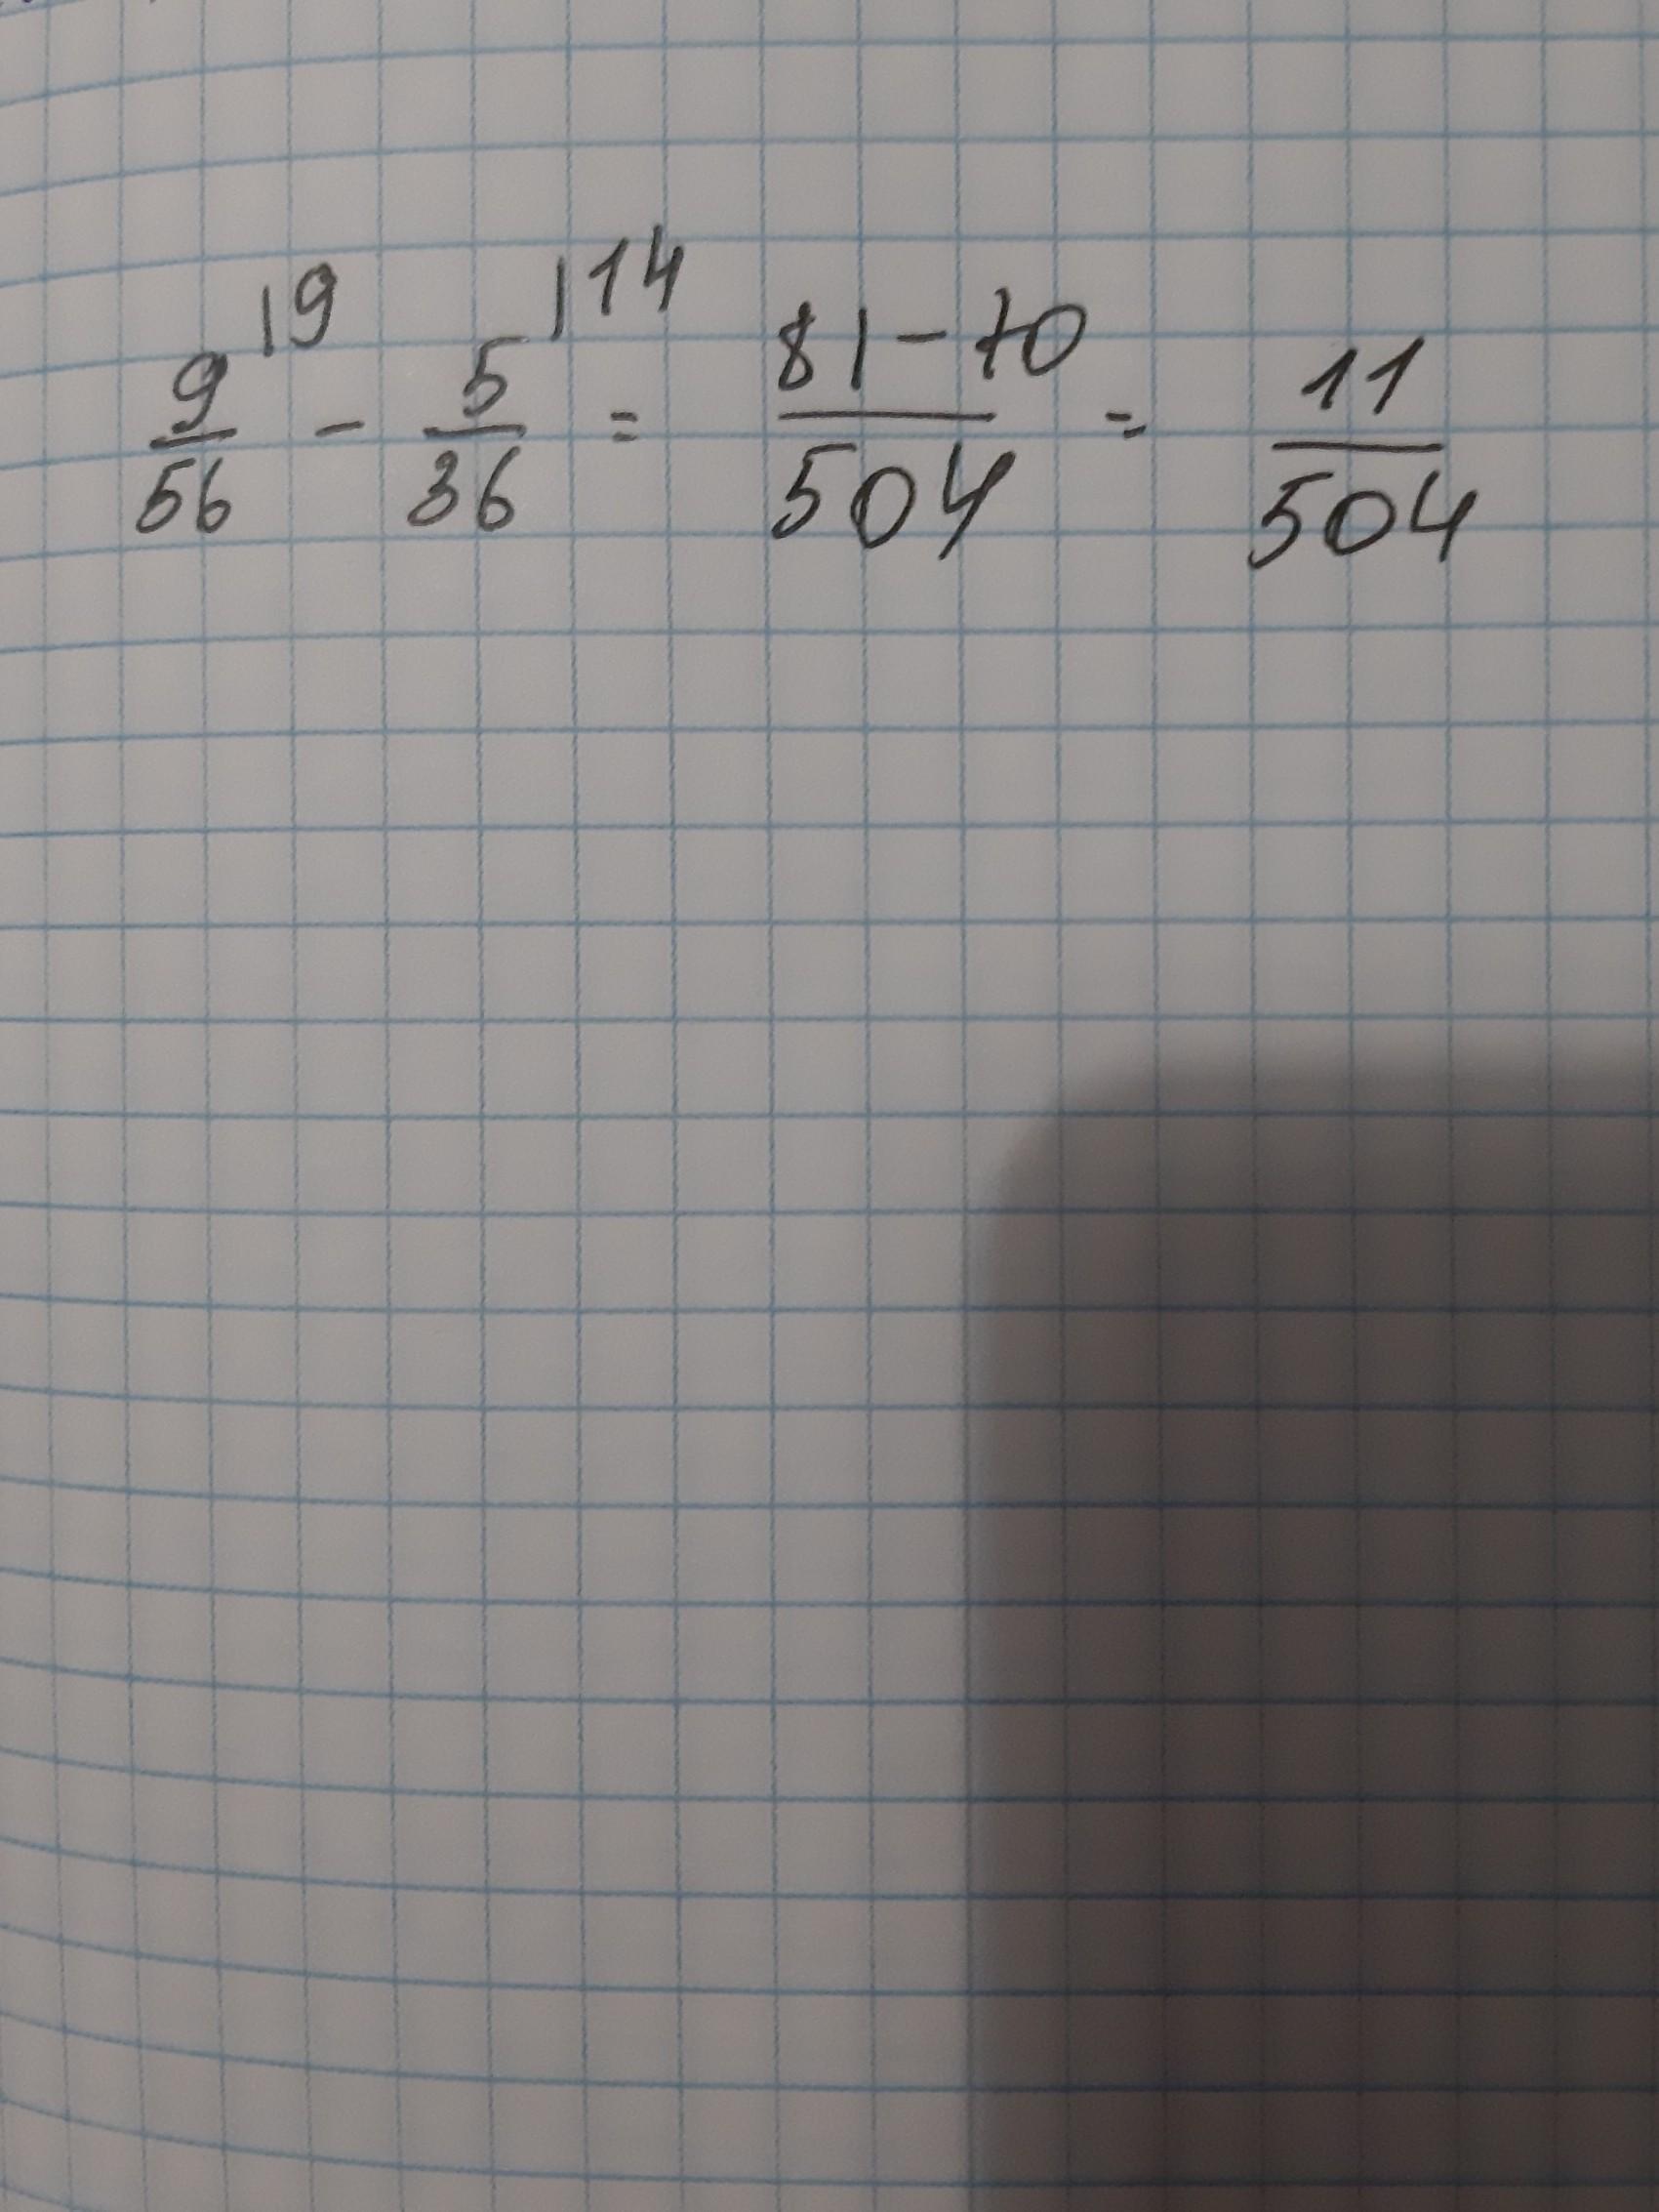 9/56 |9 - 5/36 |14 = 81-70/504 = 11/504